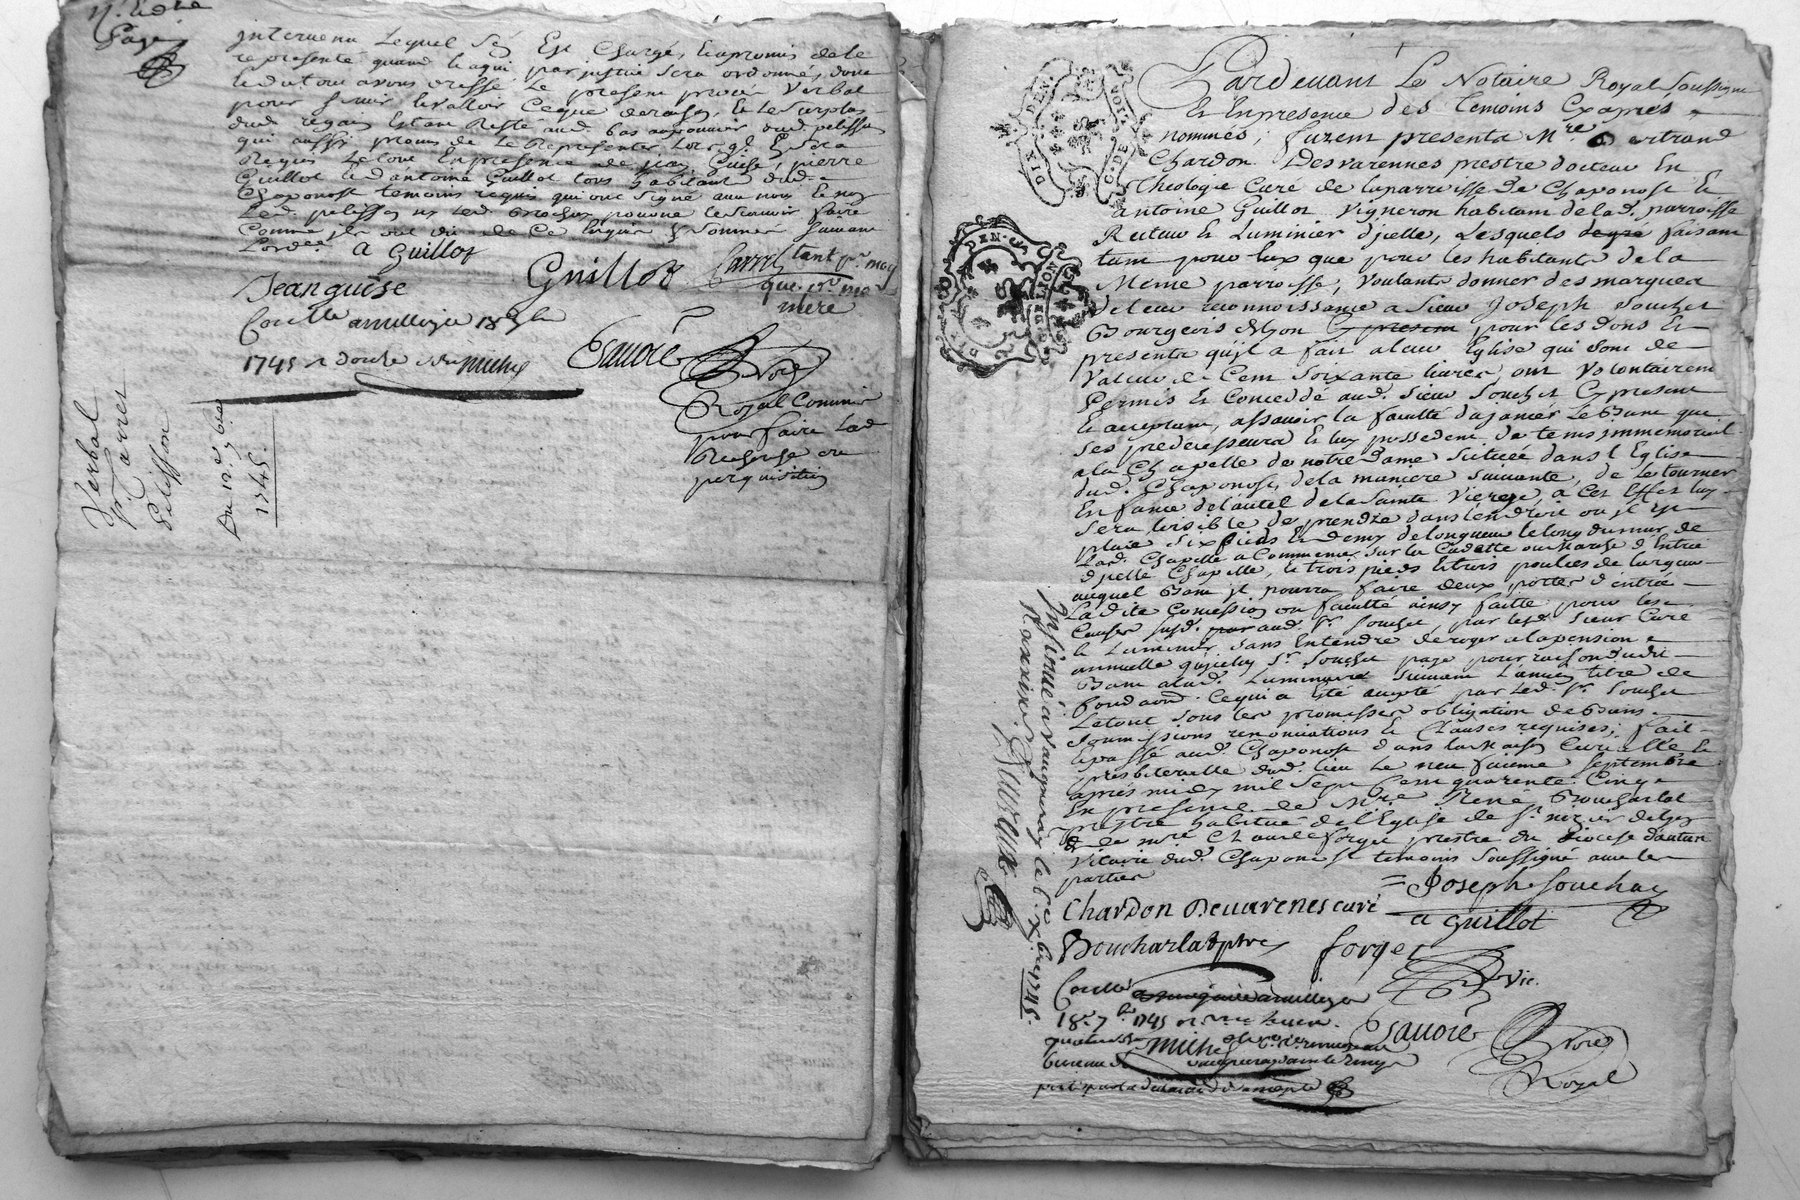 page
intervenu lequel s'es Est Chargé, Et a promis de le
representé quand Et a qui par justice sera ordonné, dont
Et du tout avons dressé le present procès Verbal
pour servir Et valloir Ce que de raison, Et le surplus
dud. Restè aud. pelisson
qui aussi promis de le Representer
Requis le tout En presence de jean Guise, pierre
Guillot Et antoine Guillot tous habitant dud.
Chaponost temoins requis qui ont signé avec nous Et non
Led. pelisson ny Led. Brochay pour ne le scavoir faire
Comme ils ont dit de Ce Enquis & sommés suivant
Lord.ce
A Guillot
Guillot
Carret tant pr. moy
que pr. ma
mere
Jean guise
Conllé a millery le 18 7bre
1745 Michel
Esauoré
Nore
Royal Commis
pour faire Lad
Recherche ou
perquisition
Verbal
pr Carret
Pelisson
Du 12e 7bre
1745.
Pardevant Le Notaire Royal soussigné
Et En presence des temoins Cy apres
nommés, furent presents Mre Bertrand
Chardon Desvarennes prestre docteur En
Theologie Curé de la parroisse de Chaponost Et
antoine Guillot Vigneron habitant de lad. parroisse
Recteur Et Luminier d'jcelle, Lesquels de gré faisant
tant pour Eux que pour les habitants de la
Meme parroisse, Voulants donner des marques
de leur reconnoissance a sieur Joseph Souchet
Bourgeois de Lyon Cy present pour les dons Et
presents qu'jl a fait a leur Eglise qui sont de
Valeur de Cent soixante livres ont Volontairemt
Permis Et Concedé aud. Sieur Souchet Cy present
Et acceptant, assavoir la faculté d'ajancer le Banc que
ses predecesseurs Et luy possedent de tems jmmemorial
a la Chapelle de notre Dame Scituée dans l'Eglise
dud. Chaponost, de la maniere suivante, de le tourner
En face de l'autel de la sainte Vierge, a Cet Effet luy
sera loisible de prendre dans l'endroit ou jl Est
placé six pieds Et demy de longueur le long du mur de
Lad. Chapelle a Commencer sur la Cadette ou Marche d'Entrée
d'jcelle Chapelle, Et trois pieds Et trois pouces de largeur
auquel Banc jl pourra faire deux portes d'entrée
La dite Concession ou faculté ainsy faitte pour les
Causes susd. par aud. Sr. Souchet, par lesd. sieur Curé
Et Luminier sans Entendre deroger a la pension
annuelle qu'jceluy Sr. Souchet paye pour raison dudit
Banc alad. Luminaire suivant l'ancien titre de
fondaon. Ce qui a Eté accepté par led. Sr. Souchet
Le tout sous les promesses obligation de Biens
soumissions renonciations Et Clauses requises; fait
Et passé aud. Chaponost dans la maison Curialle Et
presbiteralle dud. lieu Le neufuieme septembre
après midy mil sept Cent quarente Cinq
En presence de Mre René Boucharlat
prestre habitué de l'Eglise de St. nizier de Lyon
Et de mre Claude forge prestre du diocese d'autun
Vicaire dud. Chaponost temoins soussigné avec les
parties
= Joseph Souchay
Chardon Devarenes curé
a Guillot
Boucharlat ptre
forge
Vic.
Conllé
18e 7bre 1745
Michel
Esauoré
Nore
Royal
Insinué a vaugneray le 1er Xbre 1745.